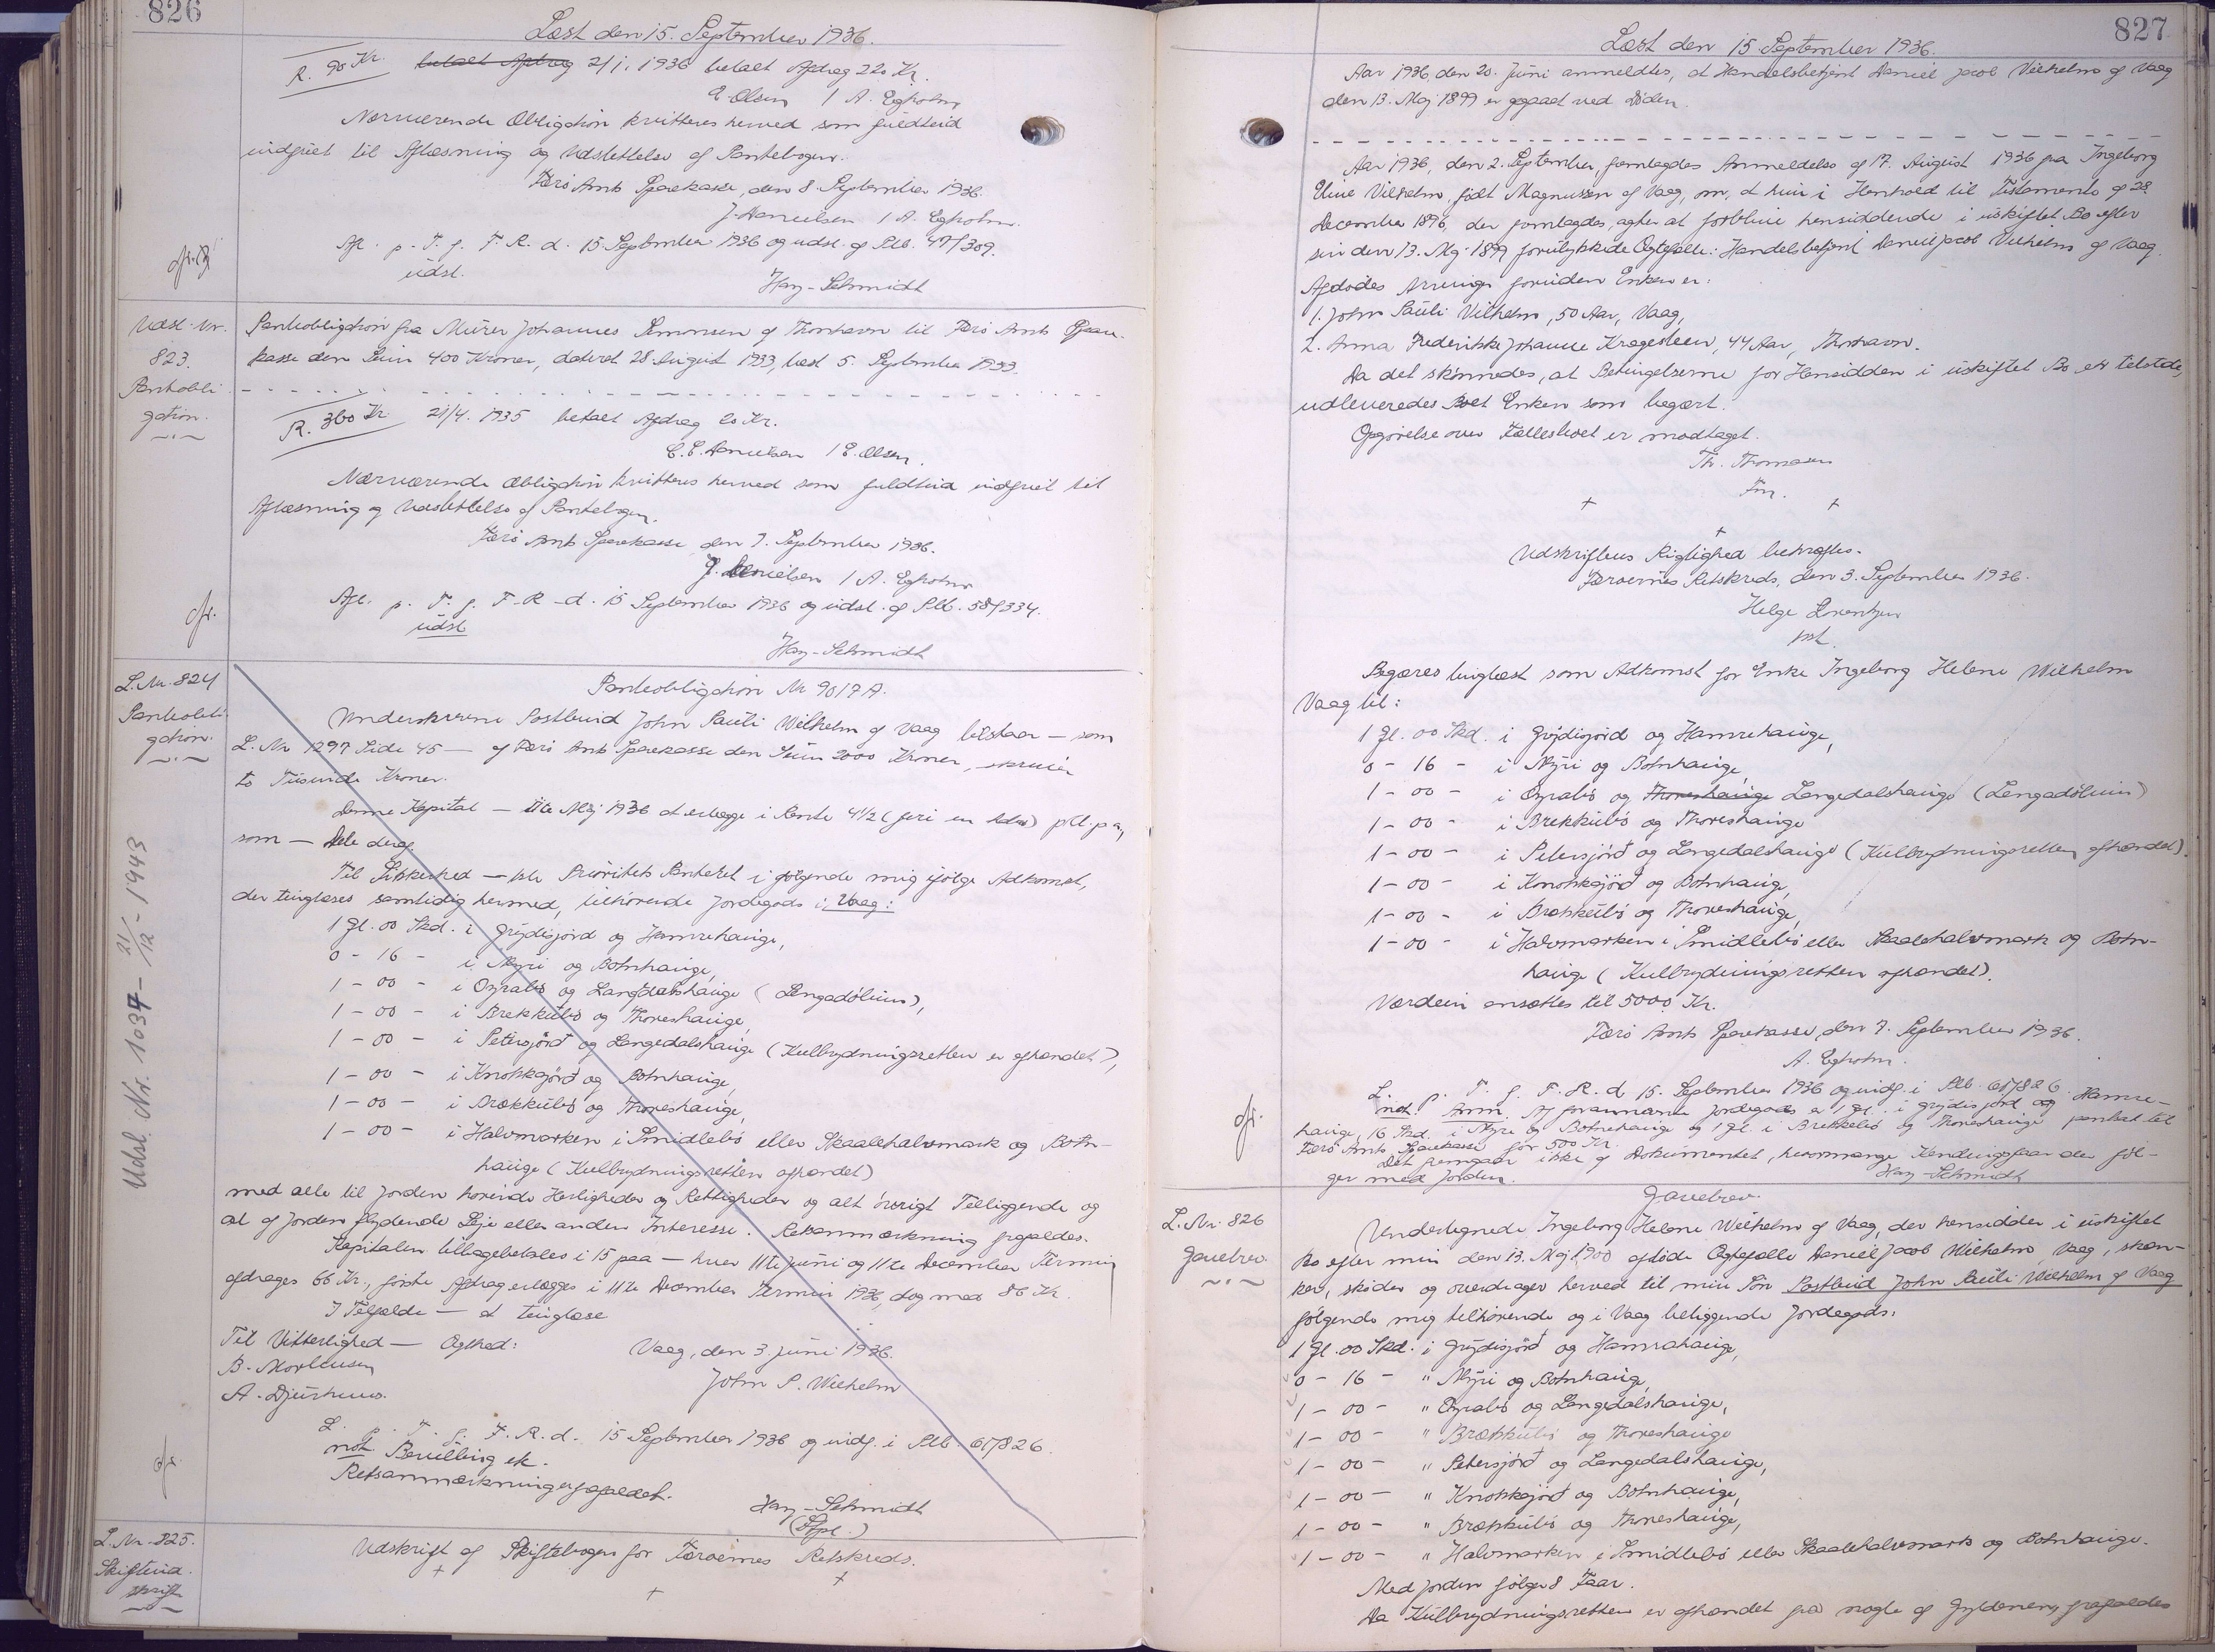 826
Læst den 15. September 1936.
R. 90 Kr. betalt Afdrag 2/1. 1936 betalt Afdrag 220 Kr.
E. Olsen / A. Egholm
Nærværende Obligation kvitteres herved som fuldtud
indfriet til Aflæsning og Udslettelse af Pantebogen.
Færø Amts Sparekasse, den 8. September 1936.
J. Danielsen / A. Egholm.
Afl. p. T. f. F. R. d. 15 September 1936 og udsl. af Ptb. 47/309.
udsl.
Hay-Schmidt
Udsl. Nr.
823.
Pantobli
gation.
Pantobligation fra Murer Johannes Simonsen af Thorshavn til Færø Amts Spare-
kasse den Sum 400 Kroner, dateret 28. August 1933, læst 5. September 1933.
R. 360 Kr 21/4. 1935 betalt Afdrag 20 Kr.
C. E. Danielsen / E. Olsen.
Nærværende Obligation kvitteres herved som fuldtud indfriet til
Aflæsning og Udslettelse af Pantebogen.
Færø Amts Sparekasse, den 7. September 1936.
J. Danielsen / A. Egholm
Afl. p. T. f. F. R. d. 15 September 1936 og udsl. af Ptb. 58/334.
udsl
Hay-Schmidt
L. Nr. 824
Pantobli
gation.
Pantobligation Nr 9017 A.
Underskrevne Postbud John Pauli Wilhelm af Vaag tilstaar — som
L. Nr 1297 Side 45 — af Færø Amts Sparekasse den Sum 2000 Kroner, skriver
to Tusinde Kroner.
Denne Kapital — 11te Maj 1936 at erlægge i Rente 4 1/2 (fire en halv) pCt. p a,
som — Dele deraf.
Til Sikkerhed — 1ste Prioritets Panteret i følgende mig ifølge Adkomst,
der tinglæses samtidig hermed, tilhørende Jordegods i Vaag:
1 Gl. 00 Skd. i Grýdisjørd og Hamrehauge,
0 - 16 - i Nýri og Botnhauge,
1 - 00 - i Oyrabø og Langdalshauge (Lengadølum),
1 - 00 - i Brekkubø og Thoreshauge,
1 - 00 - i Petersjørd og Langedalshauge (Kulbrydningsretten er afhændet),
1 - 00 - i Knokkgjørd og Botnhauge,
1 - 00 - i Brækkubø og Thoreshauge,
1 - 00 - i Halvmarken i Smidlebø eller Skaalehalvmark og Botn-
hauge (Kulbrydningsretten afhændet)
med alle til Jorden hørende Herligheder og Rettigheder og alt øvrigt Tilliggende og
al af Jorden flydende Leje eller anden Interesse. Retsanmærkning frafaldes.
Kapitalen tilbagebetales i 15 paa — hver 11te Juni og 11te December Termin
afdrages 66 Kr., første Afdrag erlægges i 11te December Termin 1936, dog med 86 Kr.
I Tilfælde — at tinglæse
Til Vitterlighed — Ægthed: Vaag, den 3. juni 1936.
B. Mortensen John P. Wilhelm
A. Djurhuus.
L. p. T. f. F. R. d. 15 September 1936 og indf. i Ptb. 61/826.
not. Bevilling ek.
Retsanmærkninger frafaldet.
Hay-Schmidt
Udsl. Nr. 1037 - 21/12 - 1943
L. Nr. 825.
Skifteud
skrift
Udskrift af Skiftebogen for Færøernes Retskreds.
827
Læst den 15 September 1936.
Aar 1936, den 20. Juni anmeldtes, at Handelsbetjent Daniel Jacob Vilhelm af Vaag
den 13. Maj 1899 er afgaaet ved Døden.
Aar 1936, den 2. September, fremlagdes Anmeldelse af 17. August 1936 fra Ingeborg
Eline Vilhelm, født Magnussen af Vaag, om, at hun i Henhold til Testamente af 28.
December 1896, der fremlagdes, agter at forblive hensiddende i uskiftet Bo efter
sin den 13. Maj 1899 forulykkede Ægtefælle: Handelsbetjent Daniel Jacob Vilhelm af Vaag.
Afdødes Arvinger foruden Enken er:
1. John Pauli Vilhelm, 50 Aar, Vaag,
2. Anna Frederikke Johanne Kragesteen, 44 Aar, Thorshavn.
Da det skønnedes, at Betingelserne for Hensidden i uskiftet Bo er tilstede,
udleveredes Boet Enken som begært.
Opgørelse over Fællesboet er modtaget.
Th. Thomasen
Fm.
Udskriftens Rigtighed bekræftes.
Færøernes Retskreds, den 3. September 1936.
Helge Lorentzen
Begæres tinglæst som Adkomst for Enke Ingeborg Helene Wilhelm
Vaag til:
1 Gl. 00 Skd. i Grýdisjørd og Hamrehauge,
0 - 16 - i Nýri og Botnhauge,
1 - 00 - i Oyrabø og Thoreshauge Langedalshauge (Lengadølum)
1 - 00 - i Brekkubø og Thoreshauge
1 - 00 - i Petersjørd og Langedalshauge (Kulbrydningsretten afhændet).
1 - 00 - i Knokkgjørd og Botnhauge,
1 - 00 - i Brækkubø og Thoreshauge,
1 - 00 - i Halvmarken i Smidlebø eller Skaalehalvmark og Botn-
hauge (Kulbrydningsretten afhændet).
Værdien ansættes til 5000 Kr.
Færø Amts Sparekasse, den 7. September 1936.
A. Egholm.
L. p. T. f. F. R. d. 15. September 1936 og indf. i Ptb. 61/826
not. Anm. Af forannævnte Jordegods er 1 Gl. i Grýdisjørd og Hamre-
hauge, 16 Skd. i Nýre og Botnehauge og 1 Gl. i Brekkebø og Thoreshauge pantsat til
Færø Amts Sparekasse for 500 Kr.
Det fremgaar ikke af Dokumentet, hvormange Kendingsfaar der føl-
ger med Jorden. Hay-Schmidt
L. Nr. 826
Gavebrev
Gavebrev.
Undertegnede Ingeborg Helene Wilhelm af Vaag, der hensidder i uskiftet
Bo efter min den 13. Maj 1900 afdøde Ægtefælle Daniel Jacob Wilhelm, Vaag, skæn-
ker, skøder og overdrager herved til min Søn Postbud John Pauli Wilhelm af Vaag
følgende mig tilhørende og i Vaag beliggende Jordegods:
1 Gl. 00 Skd. i Grýdisjørd og Hamrahauge,
0 - 16 - " Nýri og Botnhauge,
1 - 00 - " Oyrabø og Langedalshauge,
1 - 00 - " Brækkubø og Thoreshauge
1 - 00 - " Petersjørd og Langedalshauge,
1 - 00 - " Knokkgjørd og Botnhauge,
1 - 00 - " Brækkubø og Thoreshauge,
1 - 00 - " Halvmarken i Smidlebø eller Skaalehalvmark og Botnhauge.
Med Jorden følger 8 Faar.
Da Kulbrydningsretten er afhændet fra nogle af Gyldenerne, frafaldes